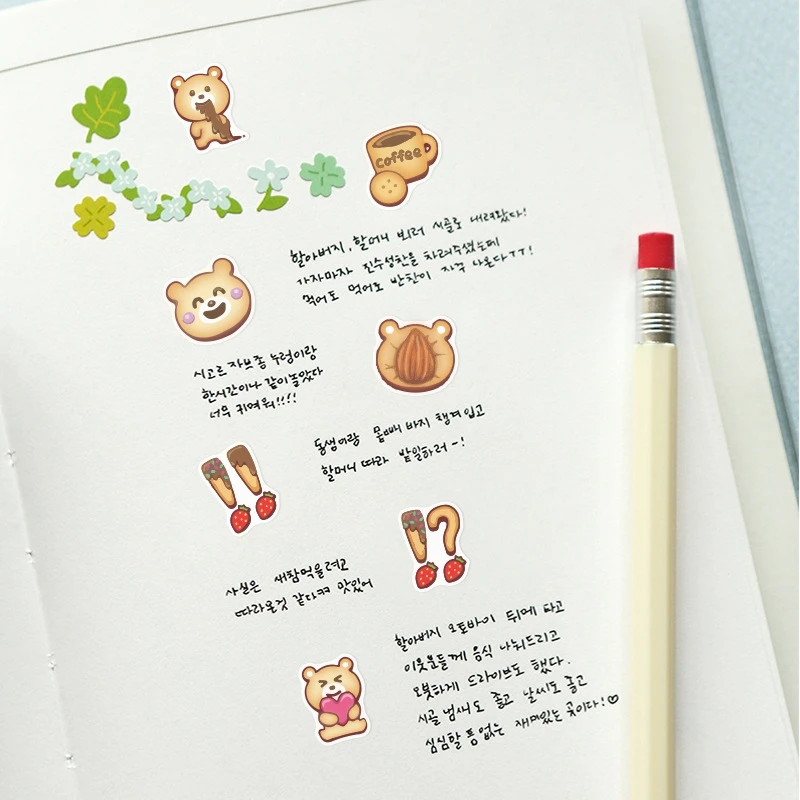 coffee
할아버지, 할머니 뵈러 시골로 내려왔다!
가자마자 진수성찬을 차려주셨는데
먹어도 먹어도 반찬이 자꾸 나온다ㅜㅜ!
시고르자브종 누렁이랑
한시간이나 같이놀았다
너무 귀여워!!!!
동생이랑 몸빼 바지 챙겨입고
할머니 따라 밭일하러~!
사실은 새참먹을려고
따라온것 같다ㅋㅋ 맛있어
할아버지 오토바이 뒤에 타고
이웃분들께 음식 나눠드리고
오붓하게 드라이브도 했다.
시골 냄새도 좋고 날씨도 좋고
심심할 틈 없는 재미있는 곳이다!♡